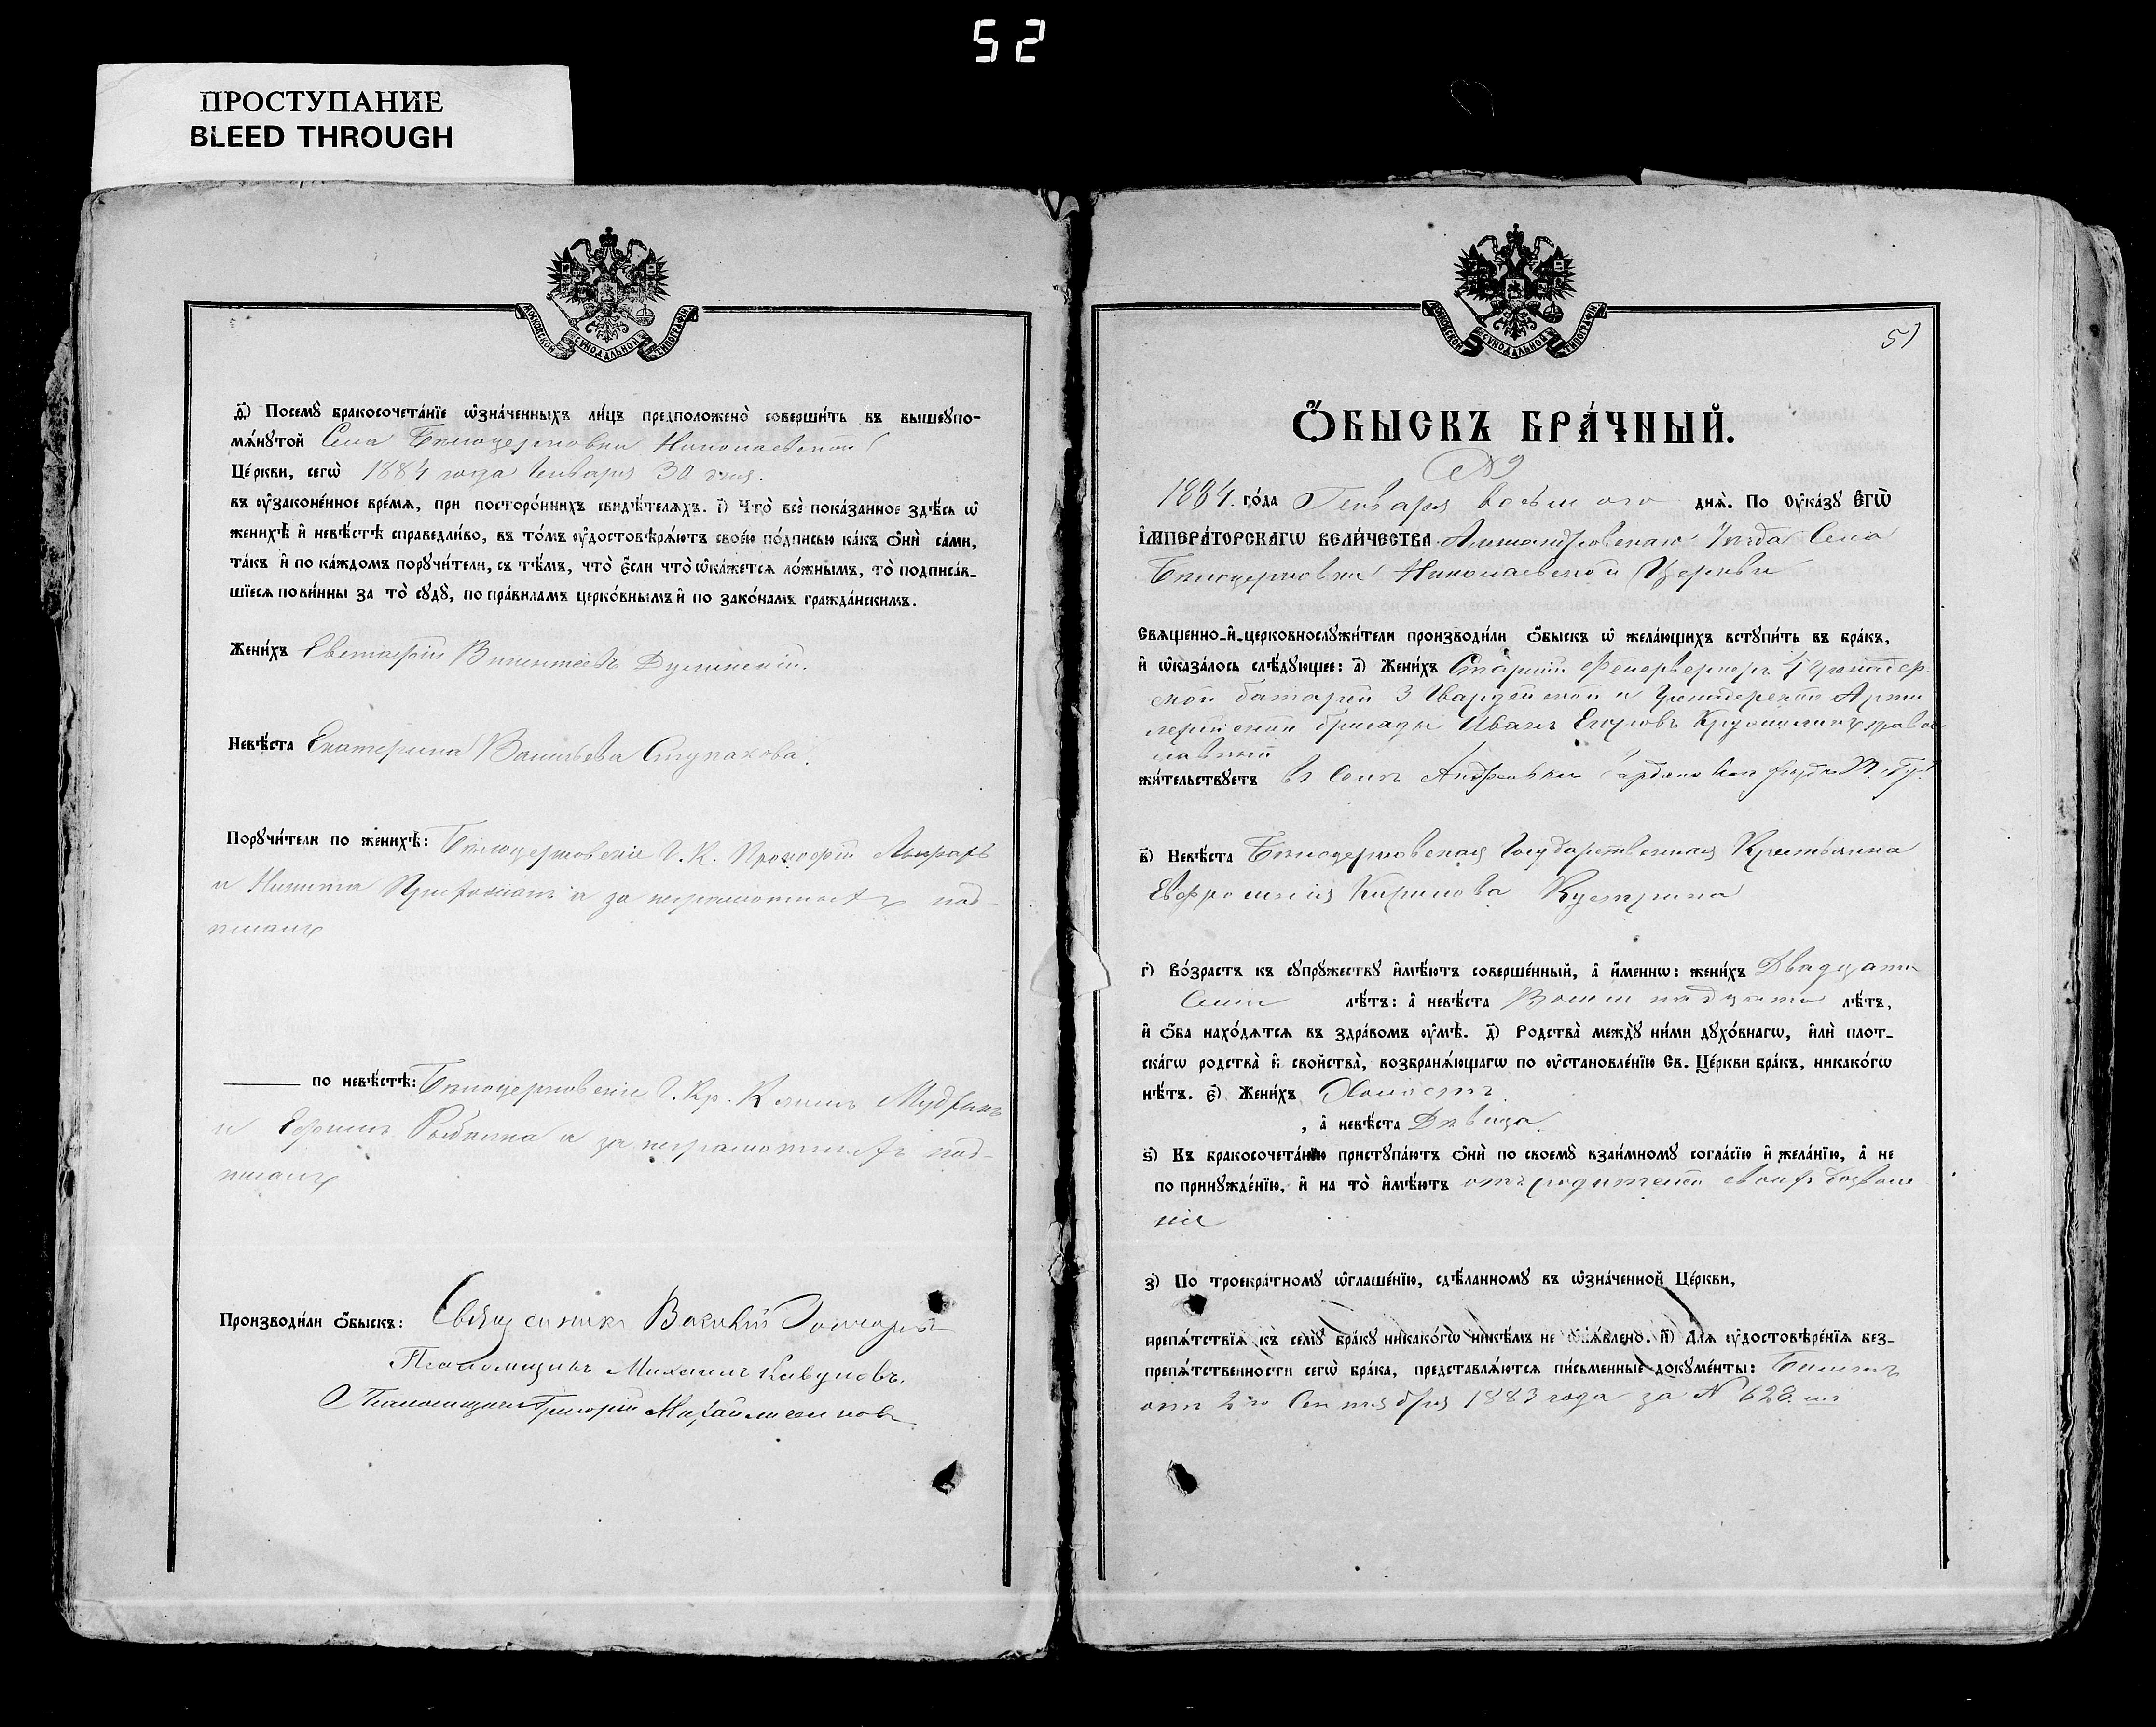 52
ПРОСТУПАНИЕ
BLEED THROUGH
МОСКОВСКОЙ СѴНОДАЛЬНОЙ ТИПОГРАФІИ
д҃) Посемꙋ̀ бракосочета́нїе ѡ҆зна́ченныхъ ли́цъ предположено̀ соверши́ть въ вышеꙋпо-
мѧ́нꙋтой Села Бѣлоцерковки Николаевской
Це́ркви, сегѡ̀ 1884 года Января 30 дня.
въ ᲂу҆законе́нное вре́мѧ, при посторо́ннихъ свидѣ́телѧхъ. і҃) Что̀ всѐ пока́занное здѣ́сь ѡ҆
женихѣ̀ и҆ невѣ́стѣ справедли́во, въ то́мъ ᲂу҆достовѣрѧ́ютъ свое́ю по́дписью ка́къ ѻ҆нѝ са́ми,
та́къ и҆ по ка́ждомъ порꙋчи́тели, съ тѣ́мъ, что̀ є҆́сли что̀ ѡ҆ка́жетсѧ ло́жнымъ, то̀ подписа́в-
шїесѧ пови́нны за то̀ сꙋдꙋ̀, по пра́виламъ церко́внымъ и҆ по зако́намъ гражда́нскимъ.
Жени́хъ Евстафій Викентіевъ
Невѣ́ста Екатерина Васильева Ступакова.
Порꙋчи́тели по женихѣ̀: Бѣлоцерковскіе Г. К. Прокофій
и Никита а за неграмотныхъ под-
писалъ
по невѣ́стѣ: Бѣлоцерковскіе Г. Кр.
и Ефимъ а за неграмотныхъ под-
писалъ
Произво́дили ѻ҆́быскъ: Священникъ Василій
Псаломщикъ Михаилъ Кавуновъ.
Псаломщикъ Григорій
МОСКОВСКОЙ СѴНОДАЛЬНОЙ ТИПОГРАФІИ
51
Ѻ҆́БЫСКЪ БРА́ЧНЫЙ.
№
1884. го́да Генваря восьмого днѧ̀. По ᲂу҆ка́зꙋ Є҆гѡ̀
І҆мпера́торскагѡ вели́чества Александровскаго Уѣзда Села
Бѣлоцерковки Николаевской Церкви
Свѧще́нно-и҆-церковнослꙋжи́тели производи́ли ѻ҆́быскъ ѡ҆ жела́ющихъ встꙋпи́ть въ бра́къ,
и҆ ѡ҆каза́лось слѣ́дꙋющее: а҃) Жени́хъ Старшій Фейерверкеръ 4 Гренадер-
ской батареи 3 Гвардейской и Гренадерской Арти
лерійской бригады Иванъ Егоровъ правос
лавный
жи́тельствꙋетъ въ Селѣ Андреевки
в҃) Невѣ́ста Бѣлоцерковская Государственная Крестьянка
Евфросинія Кирилова
г҃) Во́зрастъ къ сꙋпрꙋ́жествꙋ и҆мѣ́ютъ соверше́нный, а҆ и҆́меннѡ: жени́хъ Двадцати
Семи лѣ́тъ: а҆ невѣ́ста Восемнадцати лѣ́тъ,
и҆ ѻ҆́ба нахо́дѧтсѧ въ здра́вомъ ᲂу҆мѣ̀. д҃) Родства̀ междꙋ̀ ни́ми дꙋхо́внагѡ, и҆лѝ плот-
ска́гѡ родства̀ и҆ сво́йства, возбранѧ́ющагѡ по ᲂу҆становле́нїю Св. Це́ркви бра́къ, никако́гѡ
нѣ́тъ. є҃) Жени́хъ Холостъ
, а҆ невѣ́ста Дѣвица.
ѕ҃) Къ бракосочета́нїю пристꙋпа́ютъ ѻ҆нѝ по своемꙋ̀ взаи́мномꙋ согла́сїю и҆ жела́нїю, а҆ не
по принꙋжде́нїю, и҆ на то̀ и҆мѣ́ютъ отъ родителей своихъ дозволе
ніе
з҃) По троекра́тномꙋ ѡ҆глаше́нїю, сдѣ́ланномꙋ въ ѡ҆зна́ченной Це́ркви,
препѧ́тствїѧ къ семꙋ̀ бра́кꙋ никако́гѡ никѣ́мъ не ѡ҆б̾ѧ́влено. и҃) Длѧ ᲂу҆достовѣре́нїѧ без-
препѧ́тственности сегѡ̀ бра́ка, представлѧ́ютсѧ пи́сьменные докꙋме́нты: Билетъ
отъ 2го Сентября 1883 года за № 628.